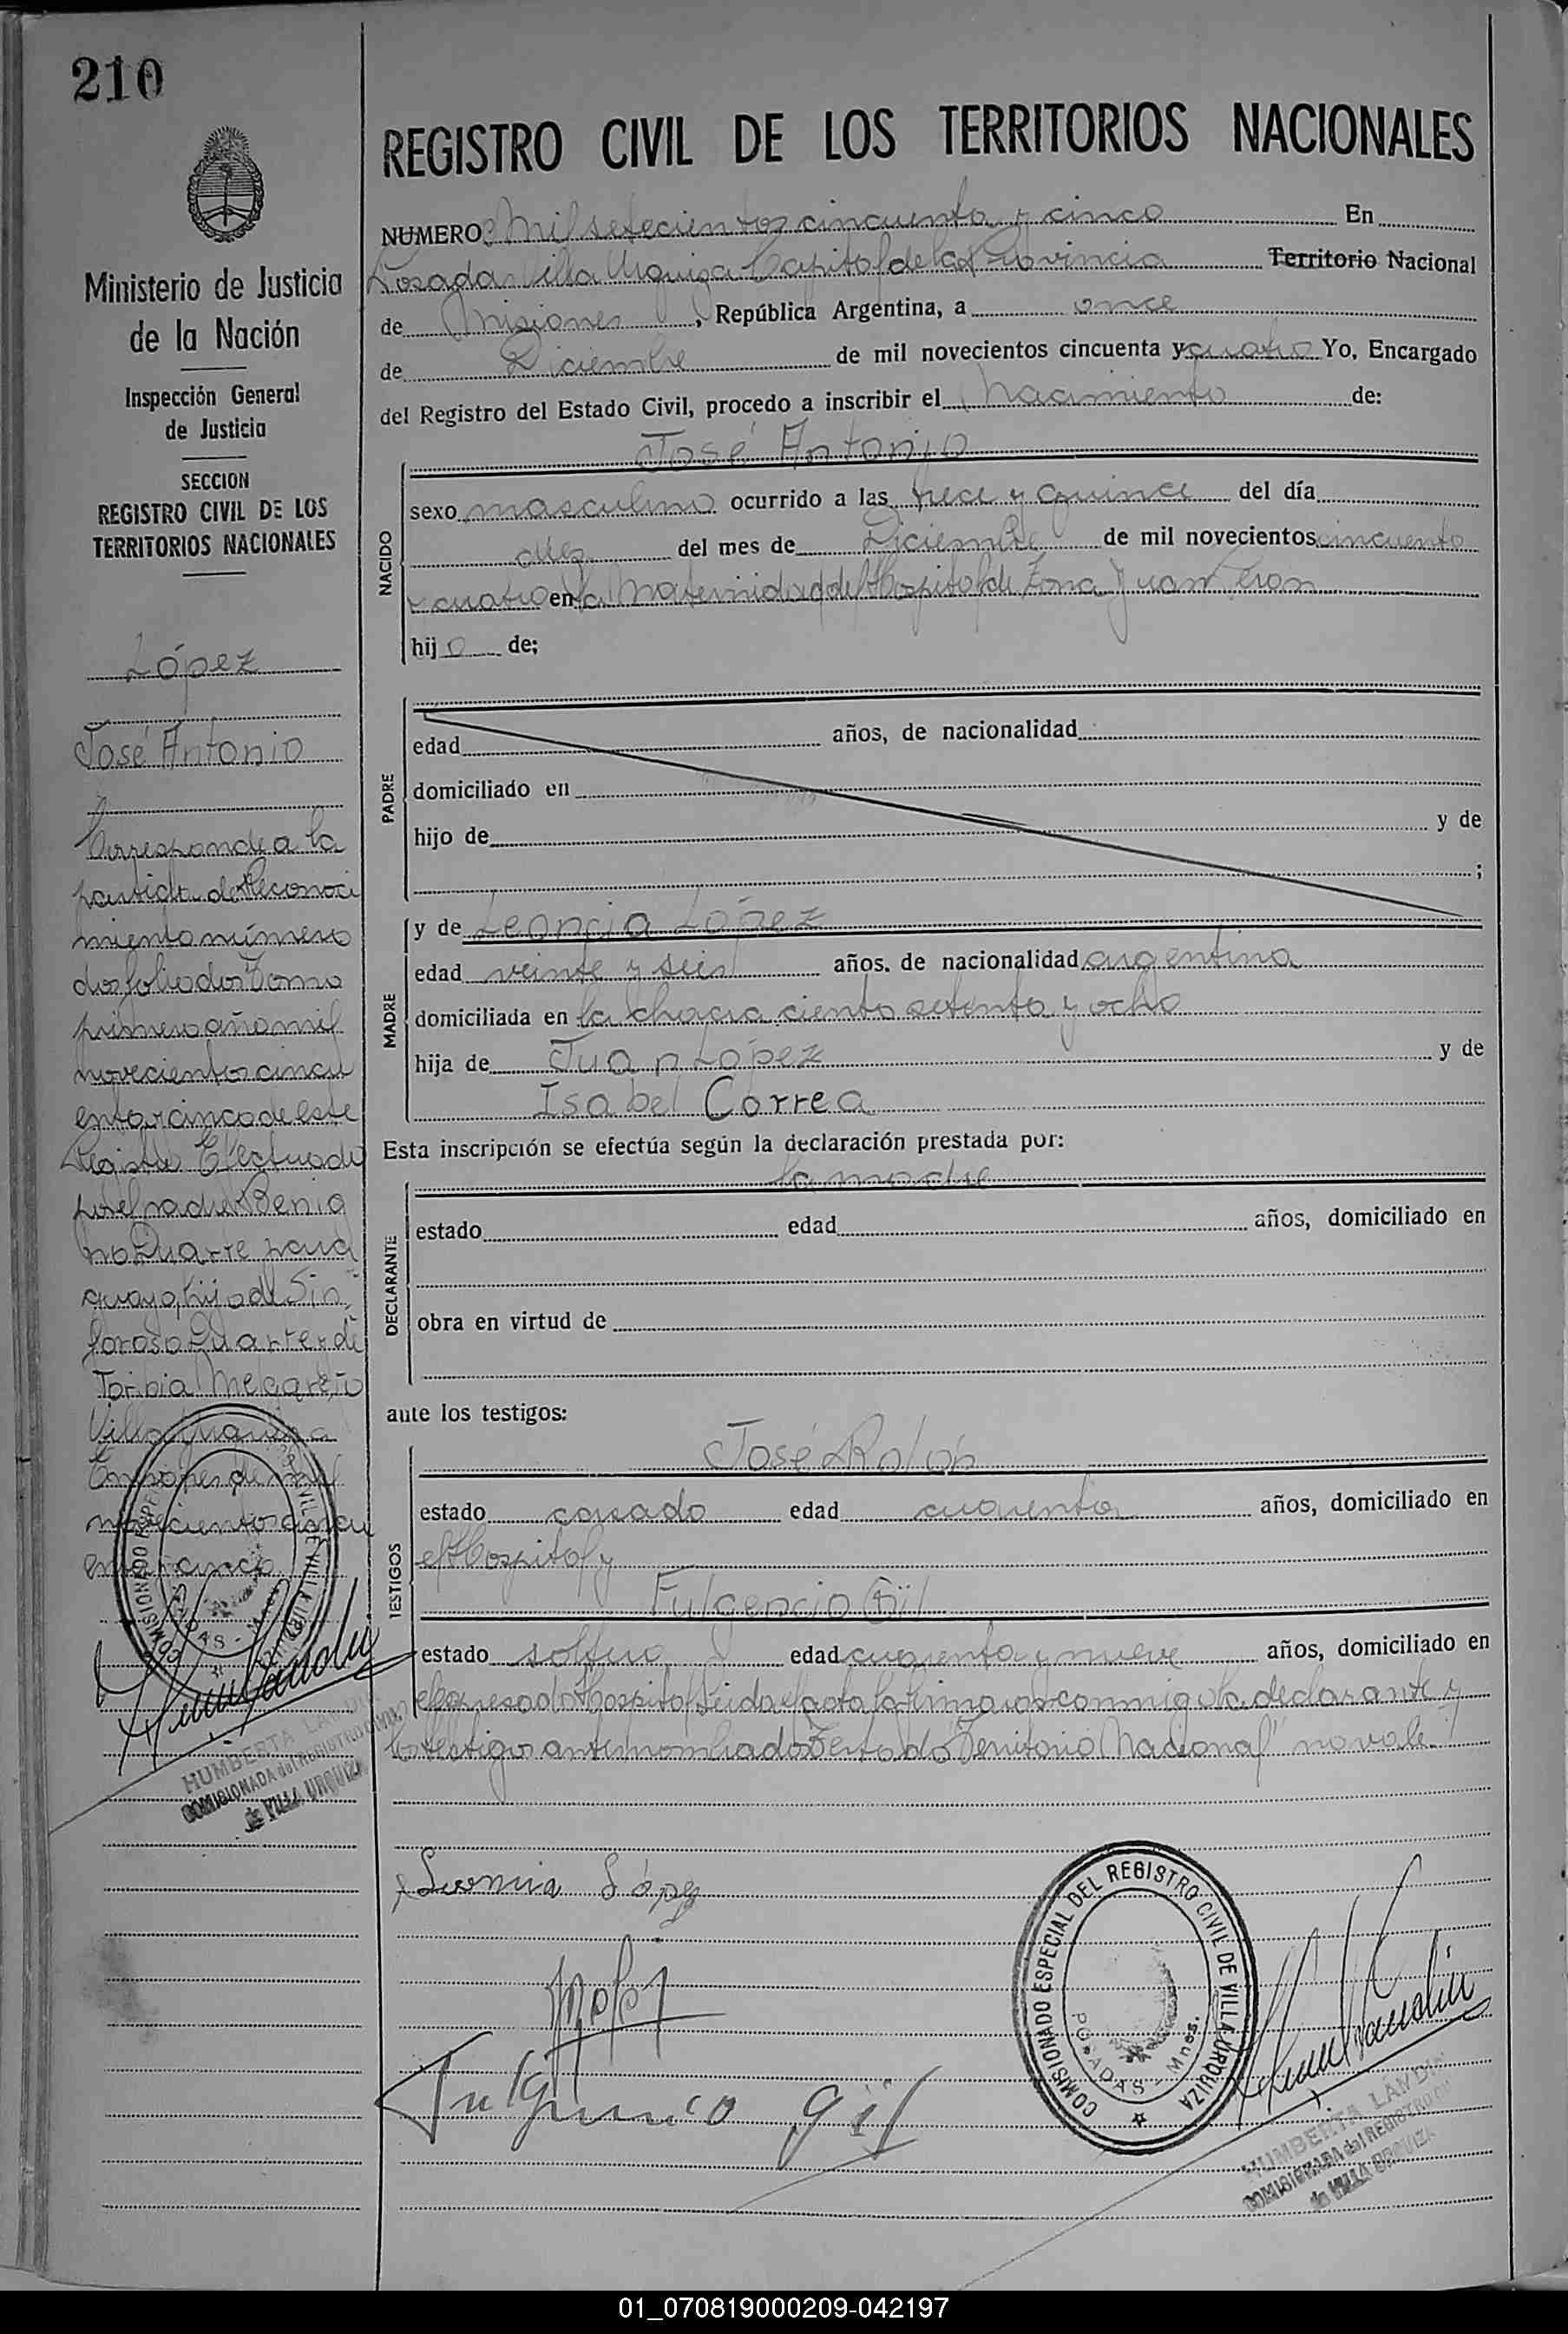 210
Ministerio de Justicia
de la Nación
Inspección General
de Justicia
SECCION
REGISTRO CIVIL DE LOS
TERRITORIOS NACIONALES
López
José Antonio
Corresponde a la
partida de Reconoci
miento número
dos folio dos Tomo
primero año mil
novecientos cincu
enta y cinco de este
Registro Efectuado
por el padre Benig
no Duarte para
guayo, hijo de Sin
foroso Duarte y de
Toribia Melgarejo
Villa Urquiza
Enero de mil
novecientos cincu
enta y cinco
COMISIONADO ESPECIAL DEL REGISTRO CIVIL DE VILLA URQUIZA
POSADAS - Mnes.
HUMBERTA LANDI
COMISIONADA del REGISTRO CIVIL
de VILLA URQUIZA
REGISTRO CIVIL DE LOS TERRITORIOS NACIONALES
NUMERO Mil setecientos cincuenta y cinco En
Posadas Villa Urquiza Capital de la Provincia Territorio Nacional
de Misiones, República Argentina, a once
de Diciembre de mil novecientos cincuenta y cuatro Yo, Encargado
del Registro del Estado Civil, procedo a inscribir el Nacimiento de:
NACIDO
José Antonio
sexo masculino ocurrido a las trece y quince del día
diez del mes de Diciembre de mil novecientos cincuenta
y cuatro en la Maternidad del Hospital de Zona Juan Perón
hijo de;
PADRE
edad años, de nacionalidad
domiciliado en
hijo de y de
;
MADRE
y de Leoncia López
edad veinte y seis años. de nacionalidad argentina
domiciliada en la chacra ciento setenta y ocho
hija de Juan López y de
Isabel Correa
Esta inscripción se efectúa según la declaración prestada por:
DECLARANTE
la madre
estado edad años, domiciliado en
obra en virtud de
ante los testigos:
TESTIGOS
José Rolón
estado casado edad cuarenta años, domiciliado en
el Hospital y
Fulgencio Gil
estado soltero edad cuarenta y nueve años, domiciliado en
el expresado Hospital Leida el acta la firmaron conmigo la declarante y
los testigos antes nombrados Testado "Territorio Nacional" no vale.
Leoncia López
Fulgencio Gil
COMISIONADO ESPECIAL DEL REGISTRO CIVIL DE VILLA URQUIZA
POSADAS - Mnes.
HUMBERTA LANDI
COMISIONADA del REGISTRO CIVIL
de VILLA URQUIZA
01_070819000209-042197